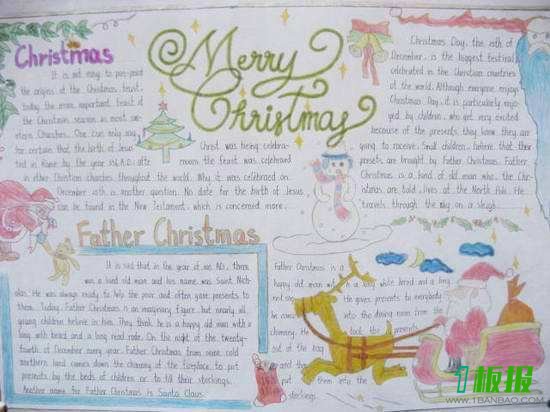 Christmas
It is not easy to pin-point
the origins of the Christmas feast,
today the most important feast of
the Christmas season in most wes-
tern Churches. One can only say
for certain that the birth of Jesus
in Rome by the year
in other Christian churches throughout the world. Why it was celebrated on
December 25th is another question. No date for the birth of Jesus
can be found in the New Testament, which is concerned more
Christ was being celebra-
the feast was celebrated
Merry
Christmas
Christmas Day, the 25th of
December, is the biggest festival
celebrated in the Christian countries
of the world. Although everyone enjoys
Christmas Day, it is particularly enjo-
yed by children, who get very excited
because of the presents they know they are
going to receive. Small children believe that their
presents are brought by Father Christmas. Father
Christmas is a kind of old man who, the Chi-
are told, lives at the North Pole. He
travels through the sky on a sleigh
Father Christmas
It is said that in the year of there
was a kind old man and his name was Saint Nich-
olas. He was always ready to help the poor and often gave presents to
them. Today, Father Christmas is an imaginary figure, but nearly all
young children believe in him. They think he is a happy old man with a
long with beard and a long read robe. On the night of the twenty-
fourth of December every year, Father Christmas from some cold
northern land comes down the chimney of the fireplace to put
presents by the beds of children or to fill their stockings.
Another name for Father Christmas is Santa Claus.
Father Christmas is a
happy old man with a long white beard and a big
red He gives presents to everybody
into the dining room from the
chimney. He took the presents
out of the bag
and
put them into the
stockings.
1板报
WWW.1BANBAO.COM